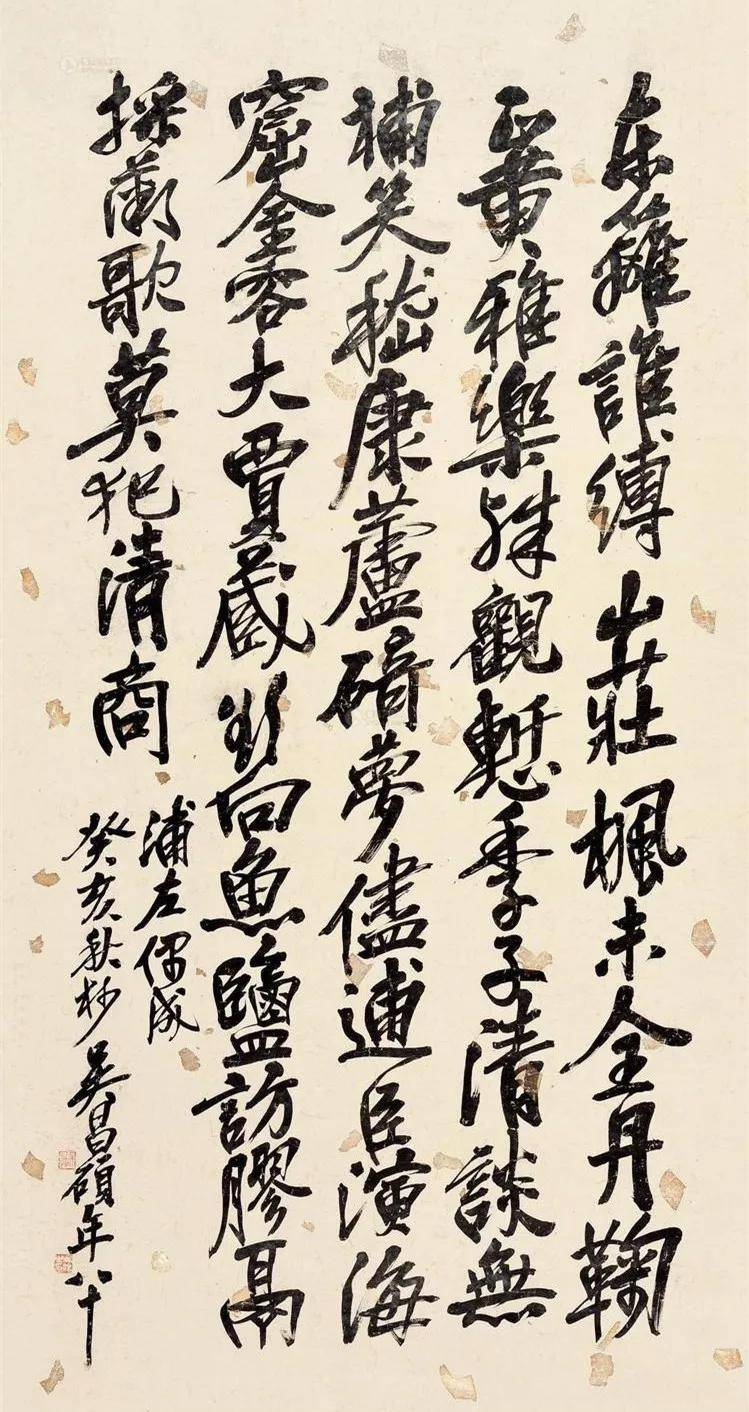 东籬誰縛山莊楓未全丹鞠
正黃雅樂殊觀慙季子清談無
補笑嵇康蘆碕夢儘逋臣演海
窟金容大賈藏向魚鹽訪膠鬲
採薇歌莫犯清商
浦左偶成
癸亥秋杪吳昌碩年八十